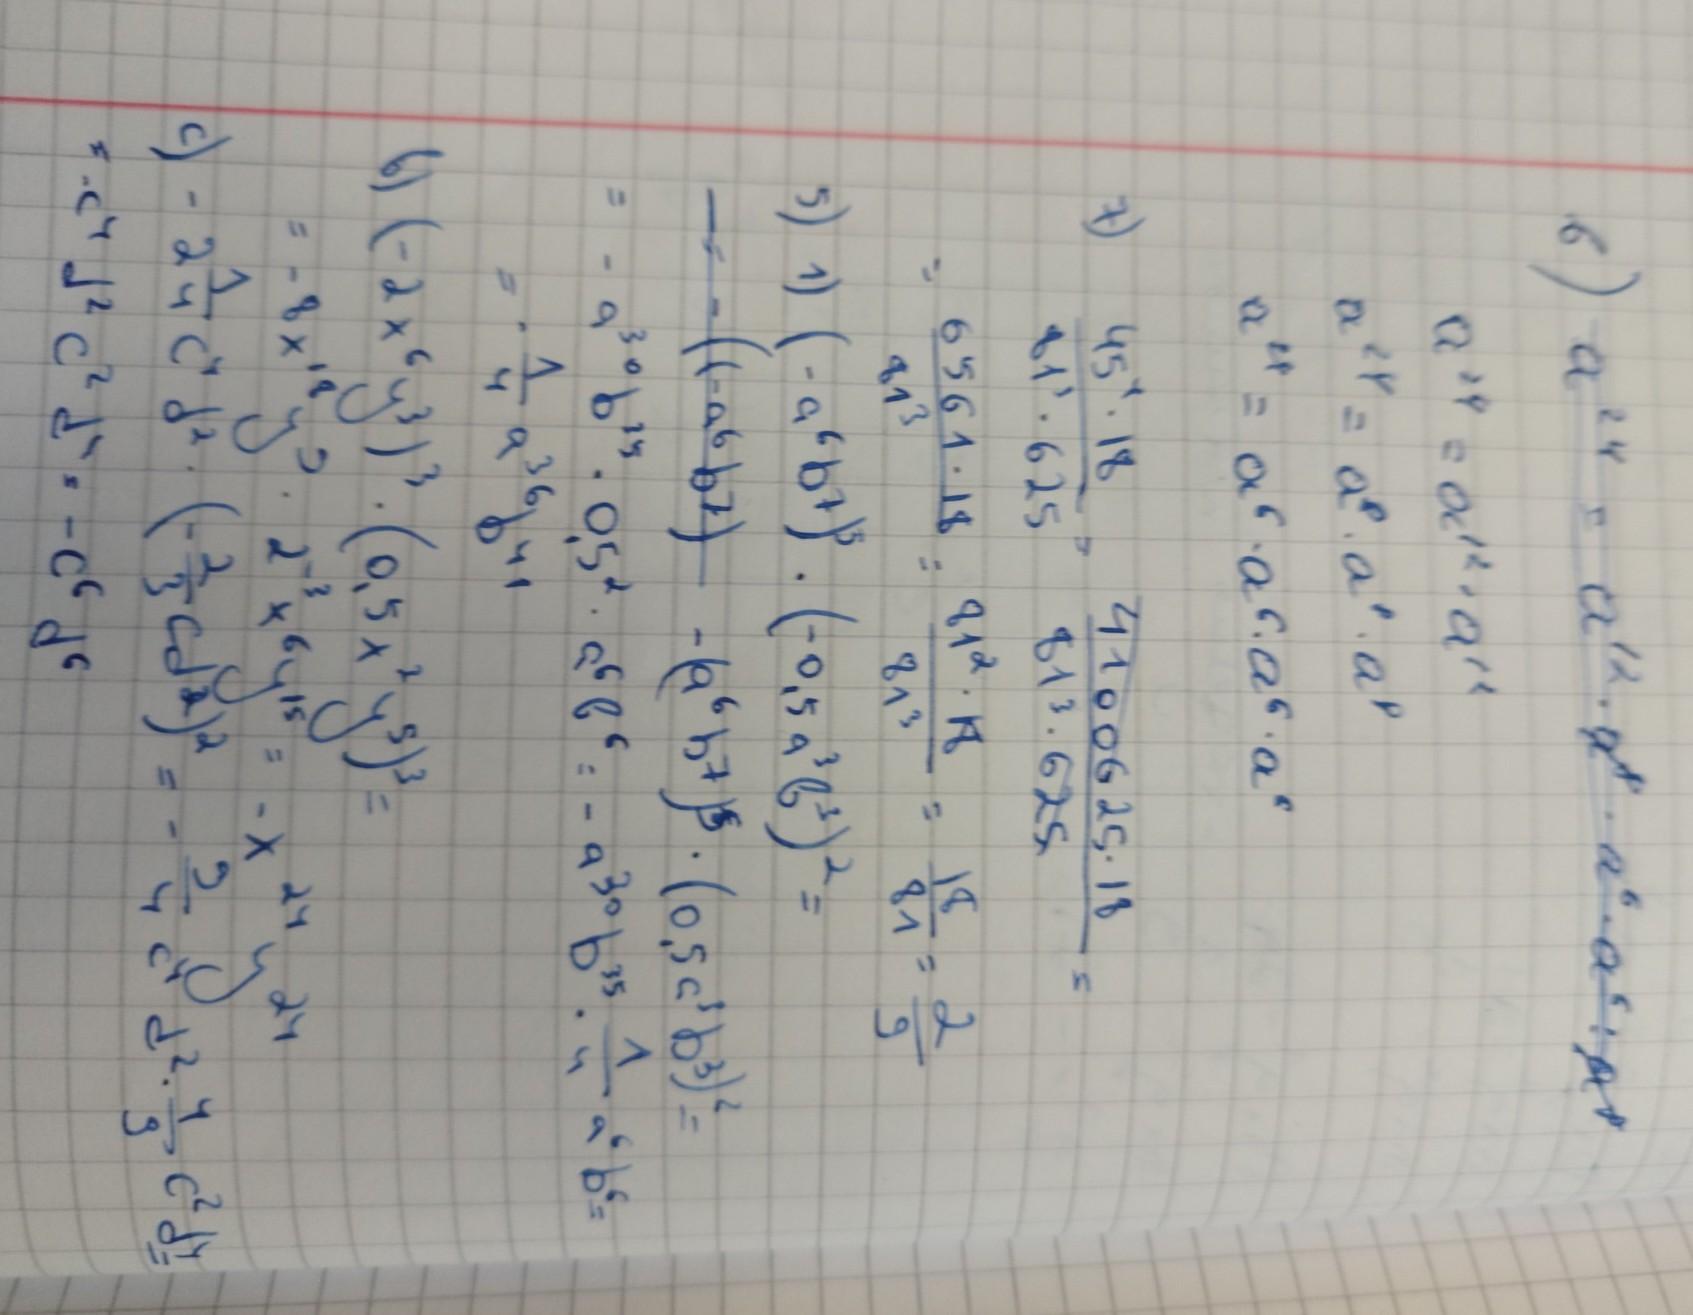 6) a²⁴ = a¹² · a⁸ · a⁶ · a⁶ · a⁸
a²⁴ = a¹² · a¹²
a²⁴ = a⁸ · a⁸ · a⁸
a²⁴ = a⁶ · a⁶ · a⁶ · a⁶
7) 45⁴ · 18 / 81³ · 625 = 4100625 · 18 / 81³ · 625 =
= 6561 · 18 / 81³ = 81² · 18 / 81³ = 18/81 = 2/9
5) 1) (-a⁶b⁷)⁵ · (-0,5a³b³)² =
= -((-a⁶b⁷) -(a⁶b⁷)⁵ · (0,5a³b³)² =
= -a³⁰b³⁵ · 0,5² · a⁶b⁶ = -a³⁰b³⁵ · 1/4 a⁶b⁶ =
= -1/4 a³⁶b⁴¹
b) (-2x⁶y³)³ · (0,5x²y⁵)³ =
= -8x¹⁸y⁹ · 2⁻³x⁶y¹⁵ = -x²⁴y²⁴
c) -2 1/4 c⁴d² · (-2/3 cd²)² = -9/4 c⁴d² · 4/9 c²d⁴ =
= -c⁴d²c²d⁴ = -c⁶d⁶